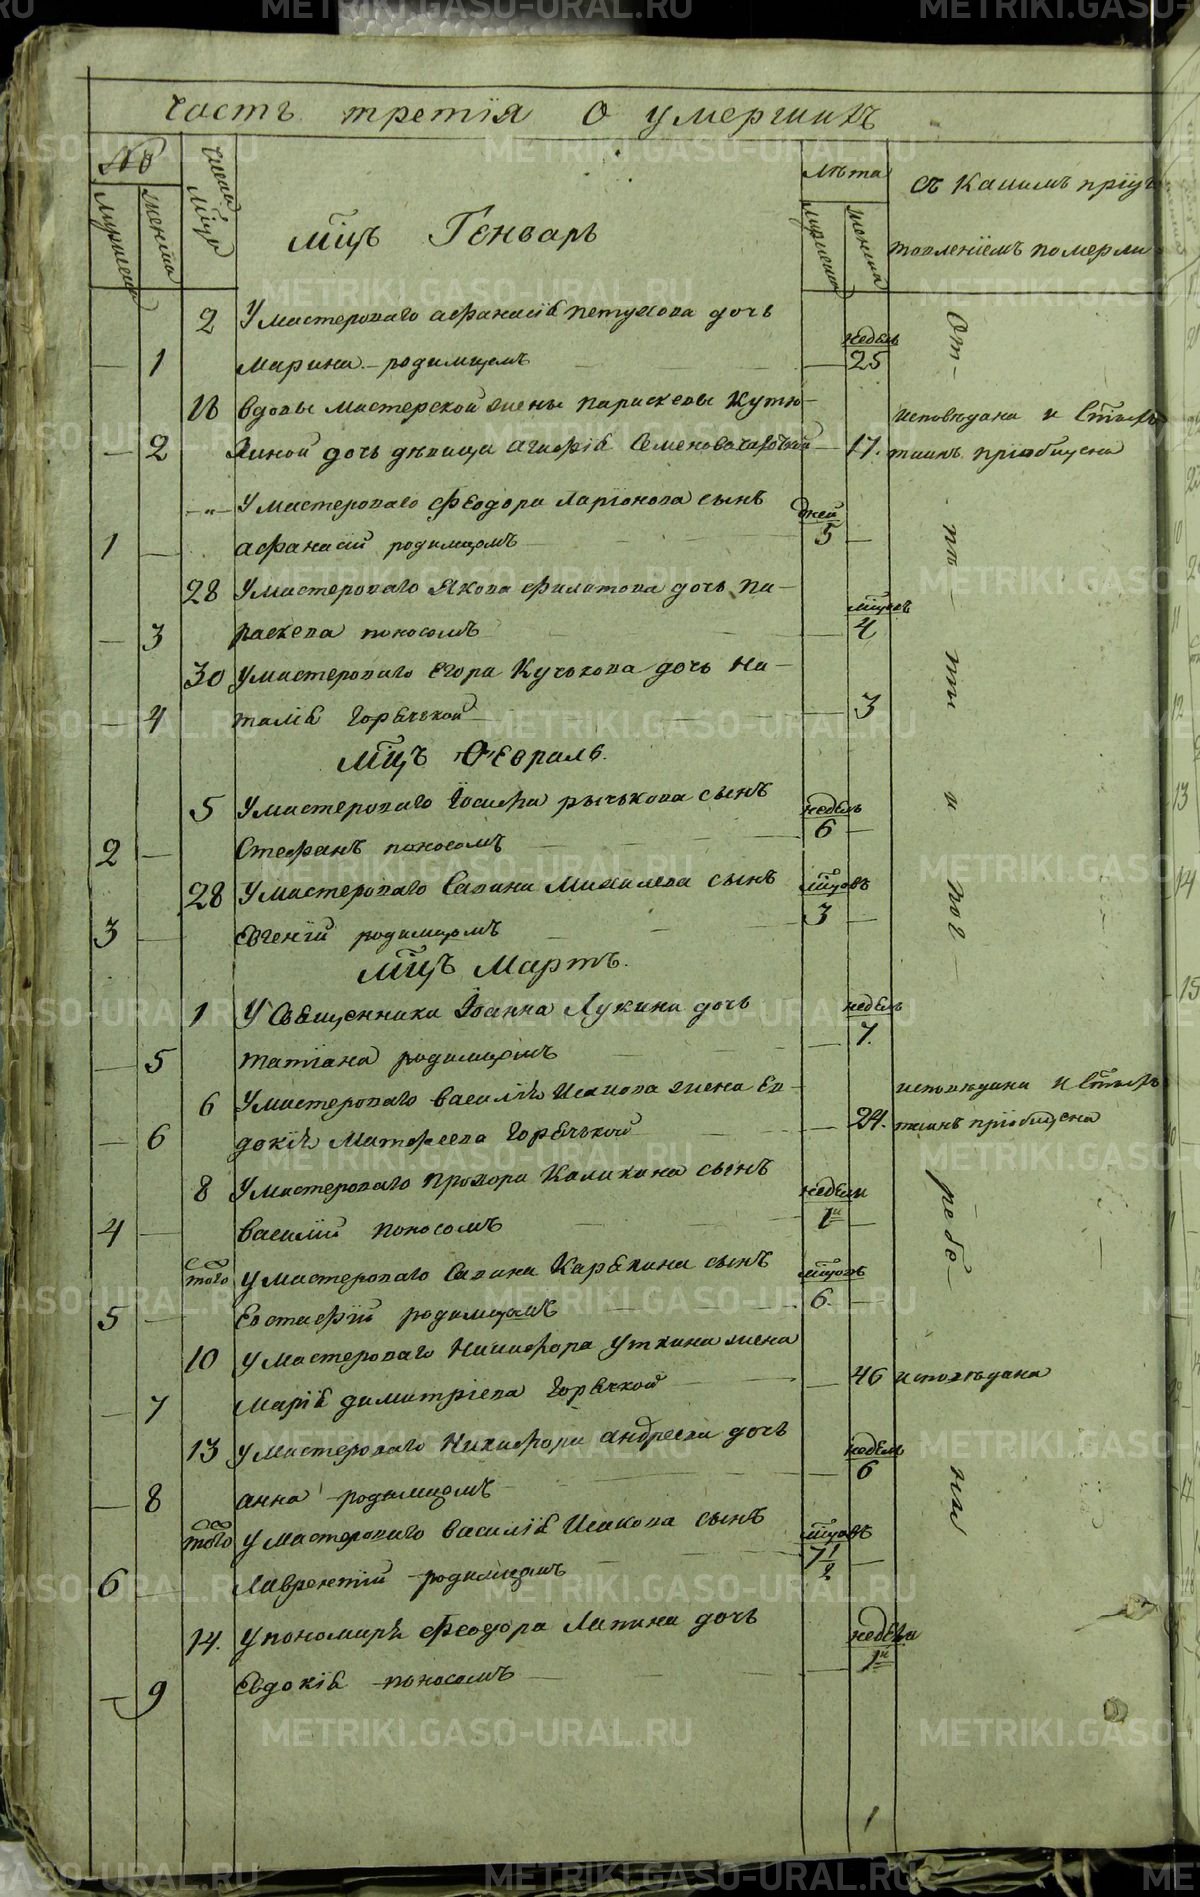 часть третія о умершихъ
№
мужеска
женска
число мѣсца
мцъ Генварь
лѣта
мужеска
женска
съ какимъ пріуго
товленіемъ померли
2 У мастероваго афанасія петухова дочь
недель
— 1 Марина родимцемъ — 25
От-
16 вдовы мастерской жены парискевы Кутю-
исповѣдана и Стыхъ
— 2 хиной дочь девица агафія Семенова чахоткой — 17. таинъ пріобщена
-"- У мастероваго Феодора Ларіонова сынъ
дней
1 — афанасій родимцомъ 5 —
пѣ-
28 У мастероваго Якова филатова дочь Па-
мцовъ
— 3 раскева поносомъ — 4
ты
30 У мастероваго Егора Кучкова дочь На-
— 4 талія горячкой — 3
мцъ Февраль.
и
5 У мастероваго Іосифа рычькова сынъ
недель
2 — Стефанъ поносомъ 6 —
28 У мастероваго Савина Михалева сынъ
мцовъ
3 — Евгеній родимцомъ 3 —
пог-
мцъ Мартъ.
1 У Священника Іоанна Лукина дочь
недель
— 5 татіана родимцомъ — 7.
6 У мастероваго василья Исакова жена Ев-
исповѣдана и Стыхъ
— 6 докія Матфеева горячькой — 24. таинъ пріобщена
8 У мастероваго прохора Калинина сынъ
недели
4 — василій поносомъ 1й —
ребе-
того У мастероваго Савина Карякина сынъ
мцовъ
5 — Евстафій родимцомъ 6. —
10 У мастероваго Никифора Уткина жена
— 7 Марія димитріева горячкой — 46 исповѣдана
13 У мастероваго Никифора андреева дочь
недель
— 8 анна родимцомъ — 6
ны
того У мастероваго василія Исакова сынъ
мцовъ
6 — Лаврентій родимцомъ 7 1/2 —
14. У пономаря Феодора Лапина дочь
недели
— 9 Евдокія поносомъ — 1й
1
METRIKI.GASO-URAL.RU